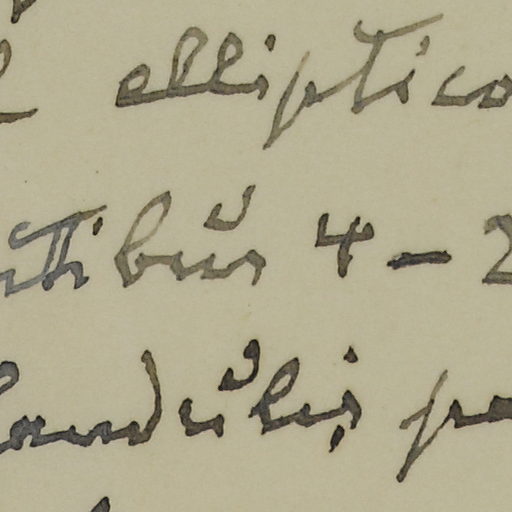 elliptico
tibus 4-2
landulis, pe